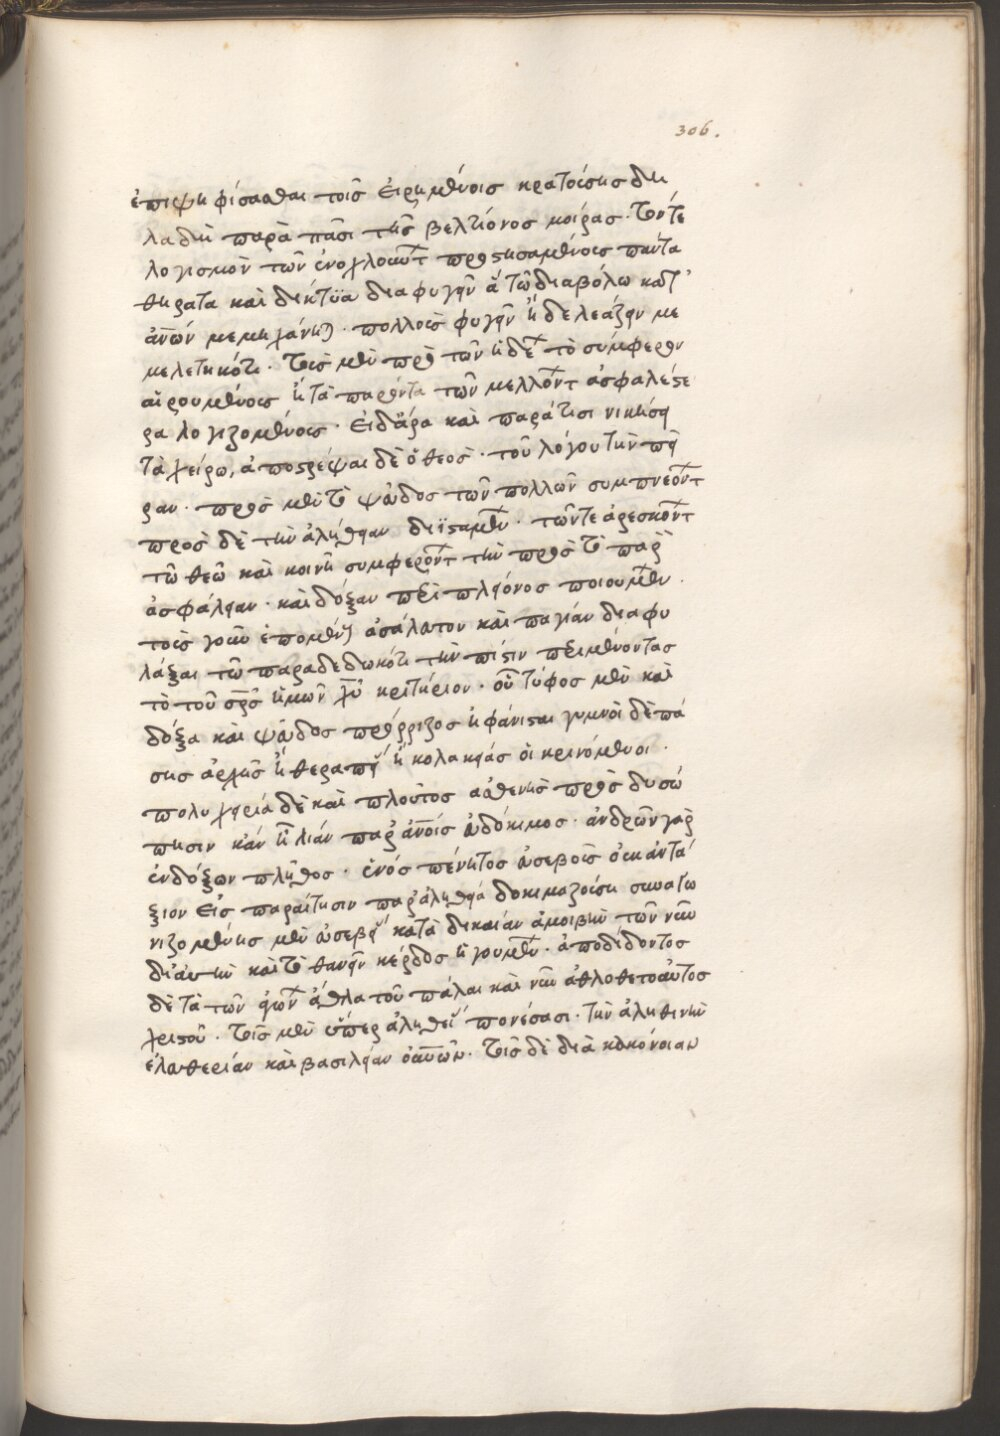 306.
ἐπιψηφίσασθαι τοῖς εἰρημένοις κρατούσης δη
λαδὴ παρὰ πᾶσι τῆς βελτίονος μοίρας. τόν τε
λογισμὸν τῶν ἐνοχλούντ προστησαμένοις πάντα
θήρατα καὶ δίκτϋα διαφυγεῖν ἃ τῶ διαβόλω κατ'
ἀνῶν μεμηχάνηται. πολλοὺς φυγεῖν ἢ δελεάζειν με
μελετηκότι. τοῖς μὲν πρὸ τῶν ἡδέ τὸ συμφέρον
αἱρουμένοις ἢ τὰ παρόντα τῶν μελλόντ ἀσφαλέστε
ρα λογιζομένοις. εἰ δ' ἄρα καὶ παρά τισι νικήσει
τὰ χείρω, ἀποστρέψαι δὲ ὁ θεὸς. τοῦ λόγου τὴν πεῖ
ραν. πρὸς μὲν τὸ ψεῦδος τῶν πολλῶν συμπνεόντ
πρὸς δὲ τὴν ἀλήθειαν διϊσταμέν. τῶν τε ἀρεσκόντ
τῶ θεῶ καὶ κοινῆ συμφερόντ τὴν πρὸς τὸ παρὸ
ἀσφάλειαν. καὶ δόξαν περὶ πλείονος ποιουμέν.
τοῖς γοῦν ἑπομένοις ἀσάλατον καὶ παγίαν διαφυ
λάξαι τῶ παραδεδωκότι τὴν πίστιν περιμένοντας
τὸ τοῦ σρς ἡμῶν χυ κριτήριον. οὗ τύφος μὲν καὶ
δόξα καὶ ψεῦδος πρόρριζος ἠφάνισται γυμνοὶ δὲ πά
σης ἀρχῆς ἢ θεραπεί ἢ κολακείας οἱ κρινόμενοι.
πολυχειρία δὲ καὶ πλοῦτος ἀσθενὴς πρὸς δυσώ
πησιν κἂν ἦ λίαν παρ ἀνοῖς εὐδόκιμος. ἀνδρῶν γὰρ
ἐνδόξων πλῆθος. ἑνὸς πένητος εὐσεβοῦς οὐκ ἀντά
ξιον εἰς παραίτησιν παρ' ἀληθεία δοκιμαζούση σκυθ
νιζομένης μὲν εὐσεβεί κατὰ δικαίαν ἀμοιβὴν τῶν νῦν
δι' αὐτὴν καὶ τὸ θανεῖν κέρδος ἡγουμέν. ἀποδιδόντος
δὲ τὰ τῶν ἀγών ἆθλα τοῦ πάλαι καὶ νῦν ἀθλοθετοῦντος
χριστοῦ. τοῖς μὲν ὑπὲρ ἀληθεί πονέσασι. τὴν ἀληθινὴν
ἐλευθερίαν καὶ βασιλείαν οὐανῶν. τοῖς δὲ διὰ κακόνοιαν